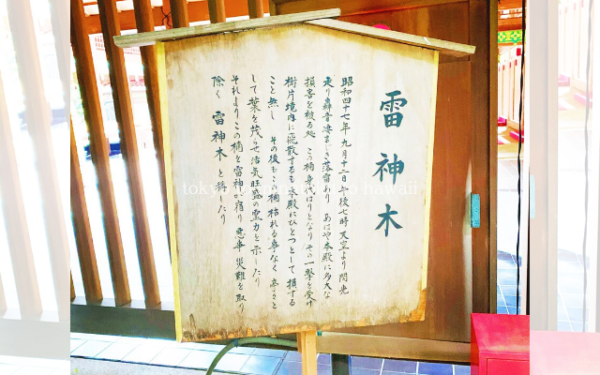 雷神木
昭和四十七年九月十二日午後七時 天空より閃光
走り轟音凄まじき落雷あり あはや本殿に多大な
損害を被る処 この楠身代はりとなりその一撃を受け
樹片境内に飛散するも本殿にひとつとして損する
こと無し その後もこの楠枯れる事なく 青々と
して葉を茂らせ活気旺盛の霊力を示したり
それよりこの楠を雷神が宿り 悪事 災難を取り
除く 雷神木と称したり